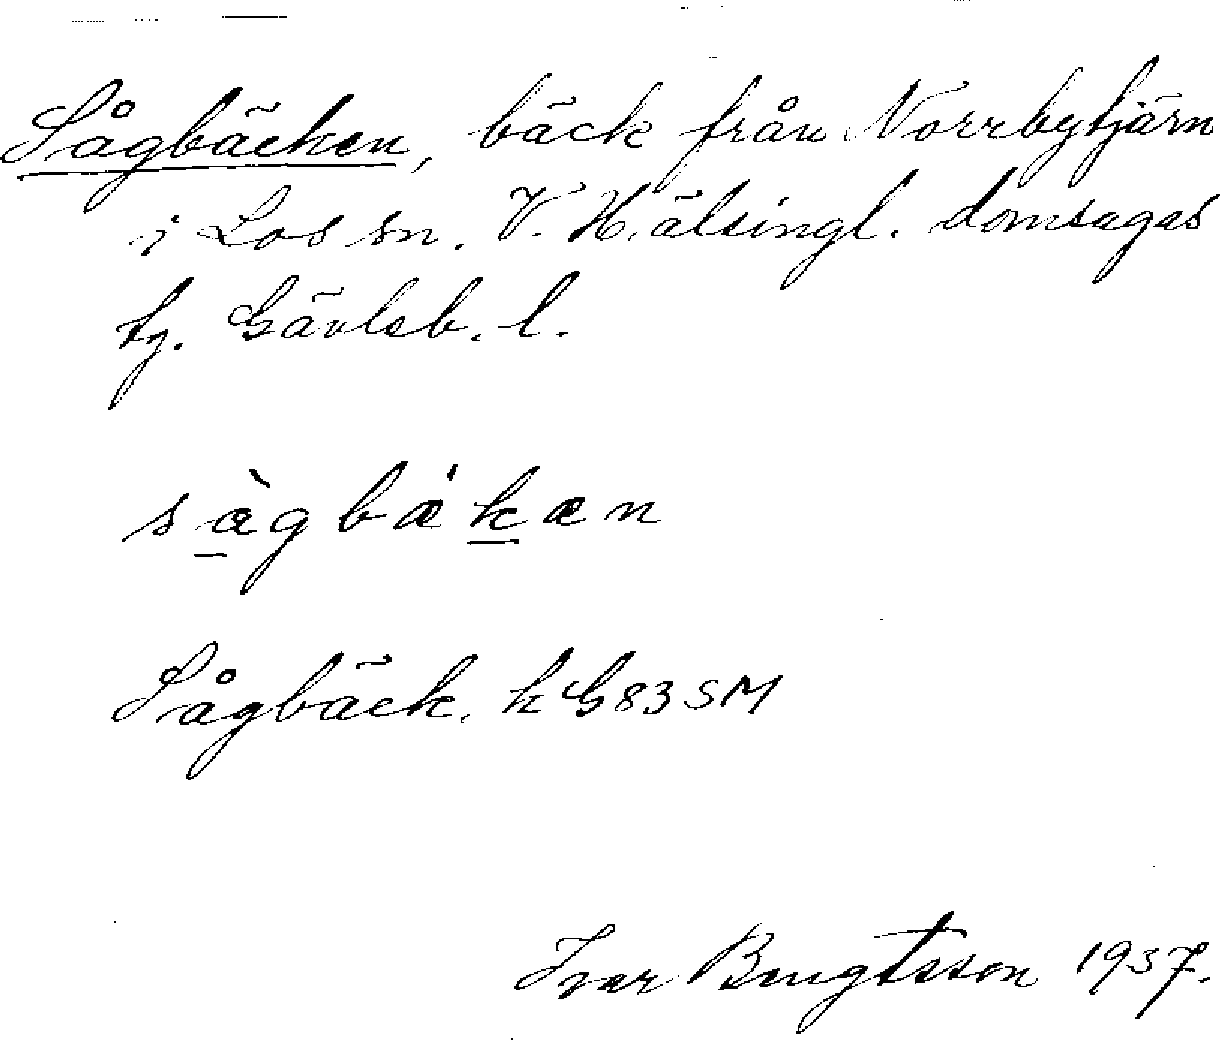 Sågbäcken, bäck från Norrbytjärn
i Los sn. V. Hälsingl. domsagas
tg. Gävleb. l.
sàgbä́kæn
Sågbäck. k G83SM
Ivar Bengtsson 1937.